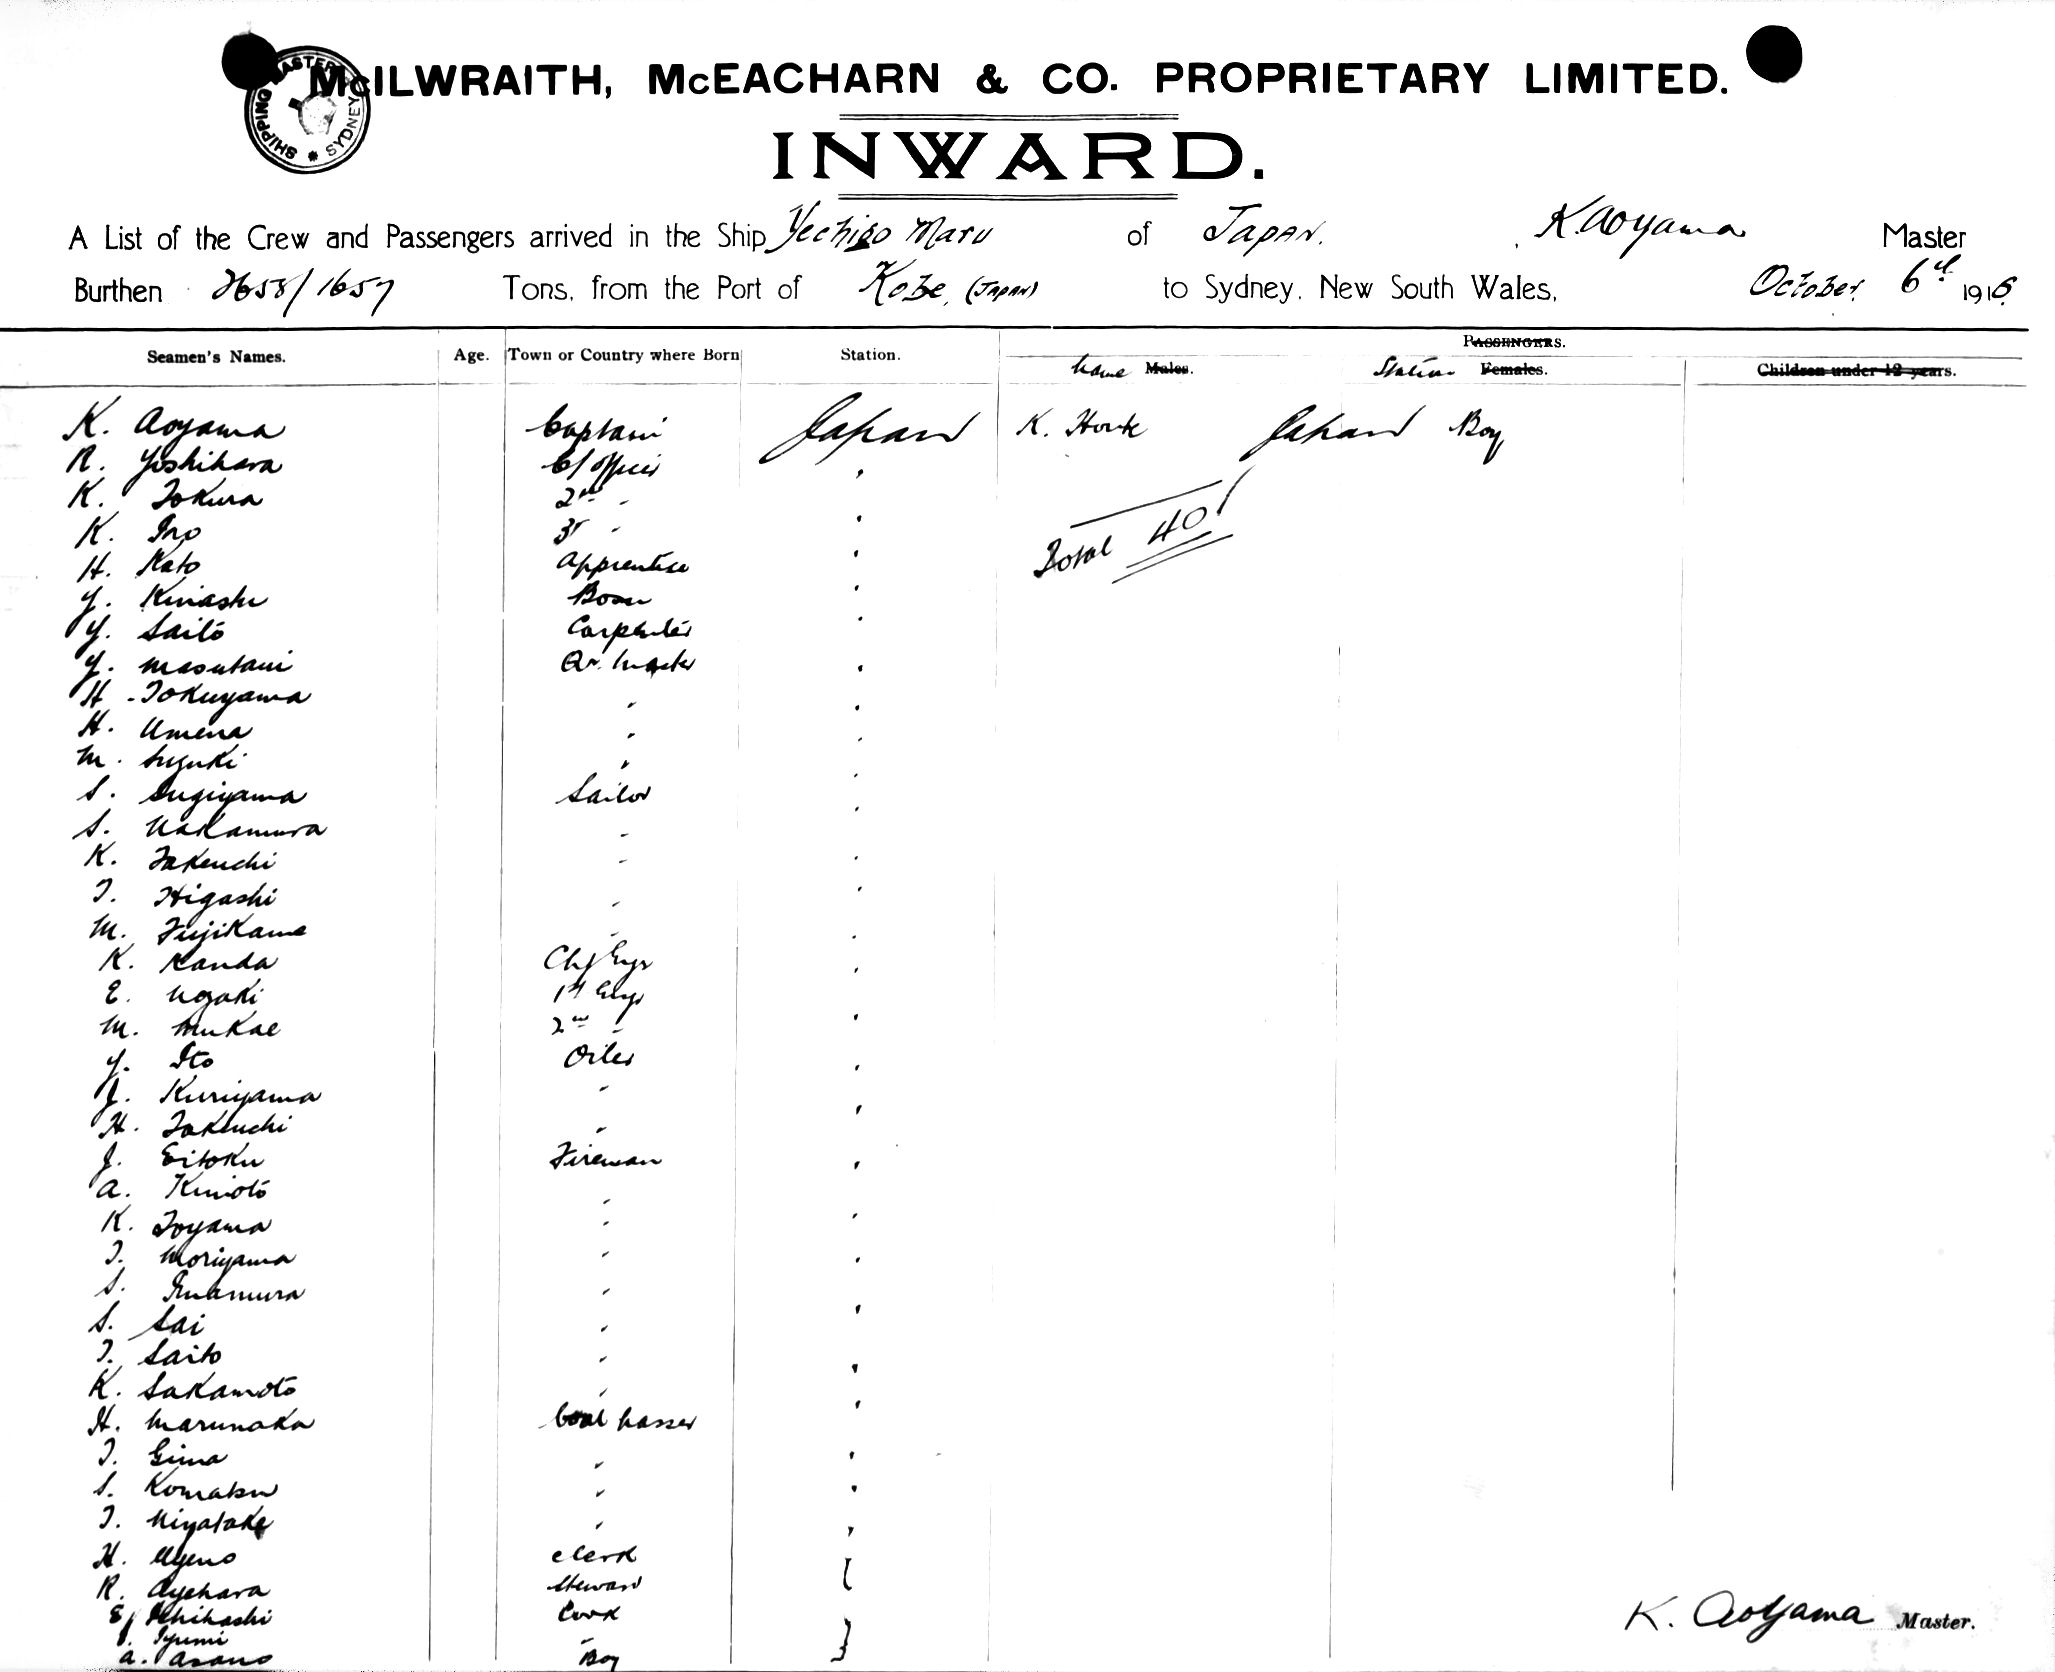 SHIPPING MASTER SYDNEY
McILWRAITH, McEACHARN & CO. PROPRIETARY LIMITED.
INWARD.
A List of the Crew and Passengers arrived in the Ship Yechigo Maru of Japan. K. Aoyama Master
Burthen 2658/1657 Tons, from the Port of Kobe, (Japan) to Sydney, New South Wales, October 6th 1916
Seamen's Names. Age. Town or Country where Born Station. Passengers.
Name Males. Station Females. Children under 12 years.
K. Aoyama Captain Japan K. Japan Boy
R. Yoshihara C/officer "
K. Tokura 2nd " "
K. Ino 3r " "
H. Kato Apprentice " Total 40
Y. Kinashi Bosn "
Y. Saito Carpenter "
Y. Masutani Qr. Master "
H. Tokuyama " "
H. Umena " "
M. Suzuki " "
S. Sugiyama Sailor "
S. Nakamura "
K. Takeuchi " "
T. Higashi " "
M. Fujikawa " "
K. Kanda Chf Engr "
E. Nozaki 1st Engr
M. Mukae 2nd " "
Y. Ito Oiler "
J. Kuriyama " "
H. Takeuchi "
J. Eitoku Fireman "
A. Kimoto "
K. Toyama " "
T. Moriyama " "
S. Imamura " "
S. Sai "
T. Saito " "
K. Sakamoto " "
H. Marunaka Coal Passer
T. Gima " "
S. Komatsu " "
T. Miyatake " "
H. Uyeno Clerk
R. Uyehara Steward
E. Ichihashi Cook
Iyumi "
A. Asano Boy
K. Aoyama Master.